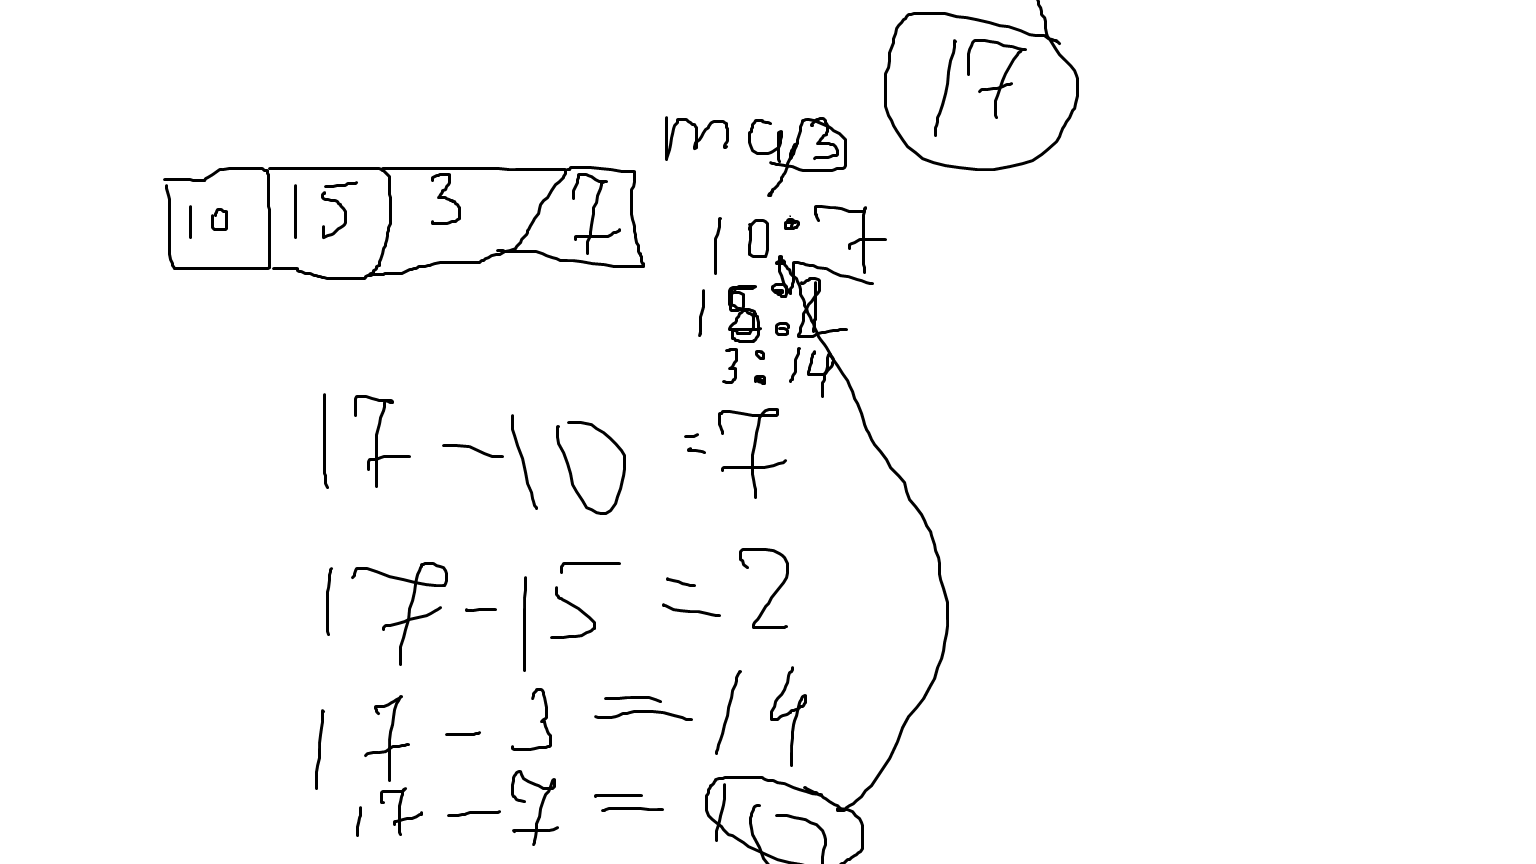 17
map
10 15 3 7
10:7
15:2
3:14
17-10=7
17-15=2
17-3=14
17-7=10